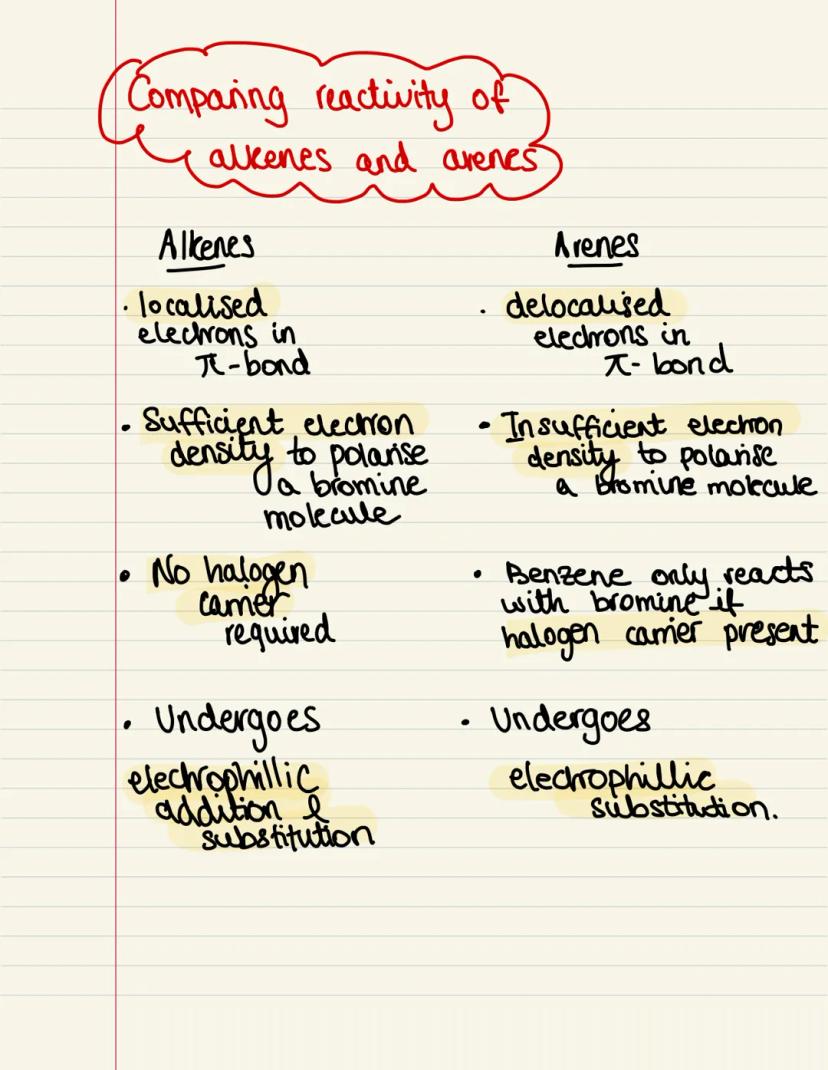 Comparing reactivity of
alkenes and arenes
Alkenes
· localised
electrons in
π-bond
· Sufficient electron
density to polarise
a bromine
molecule
· No halogen
carrier
required
· Undergoes
electrophillic
addition &
substitution
Arenes
· delocalised
electrons in
π- bond
· Insufficient electron
density to polarise
a bromine molecule
· Benzene only reacts
with bromine if
halogen carrier present
· Undergoes
electrophillic
substitution.